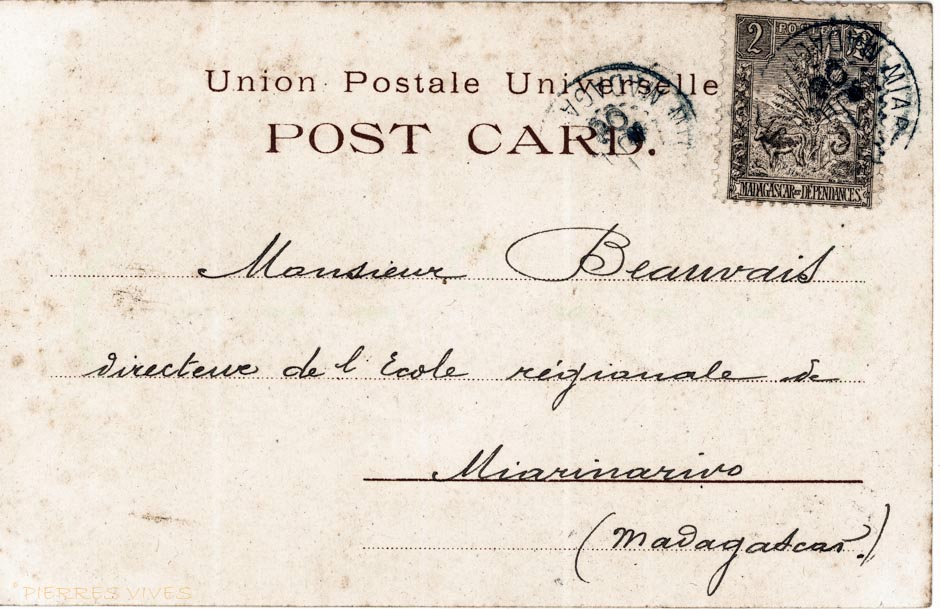 Union Postale Universelle
POST CARD.
2
POSTES
MADAGASCAR ET DÉPENDANCES
Monsieur Beauvais
directeur de l'Ecole régionale de
Miarinarivo
(Madagascar.)
PIERRES VIVES